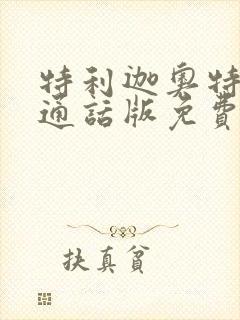 特利迦奥特
通話版免費
扶真貧